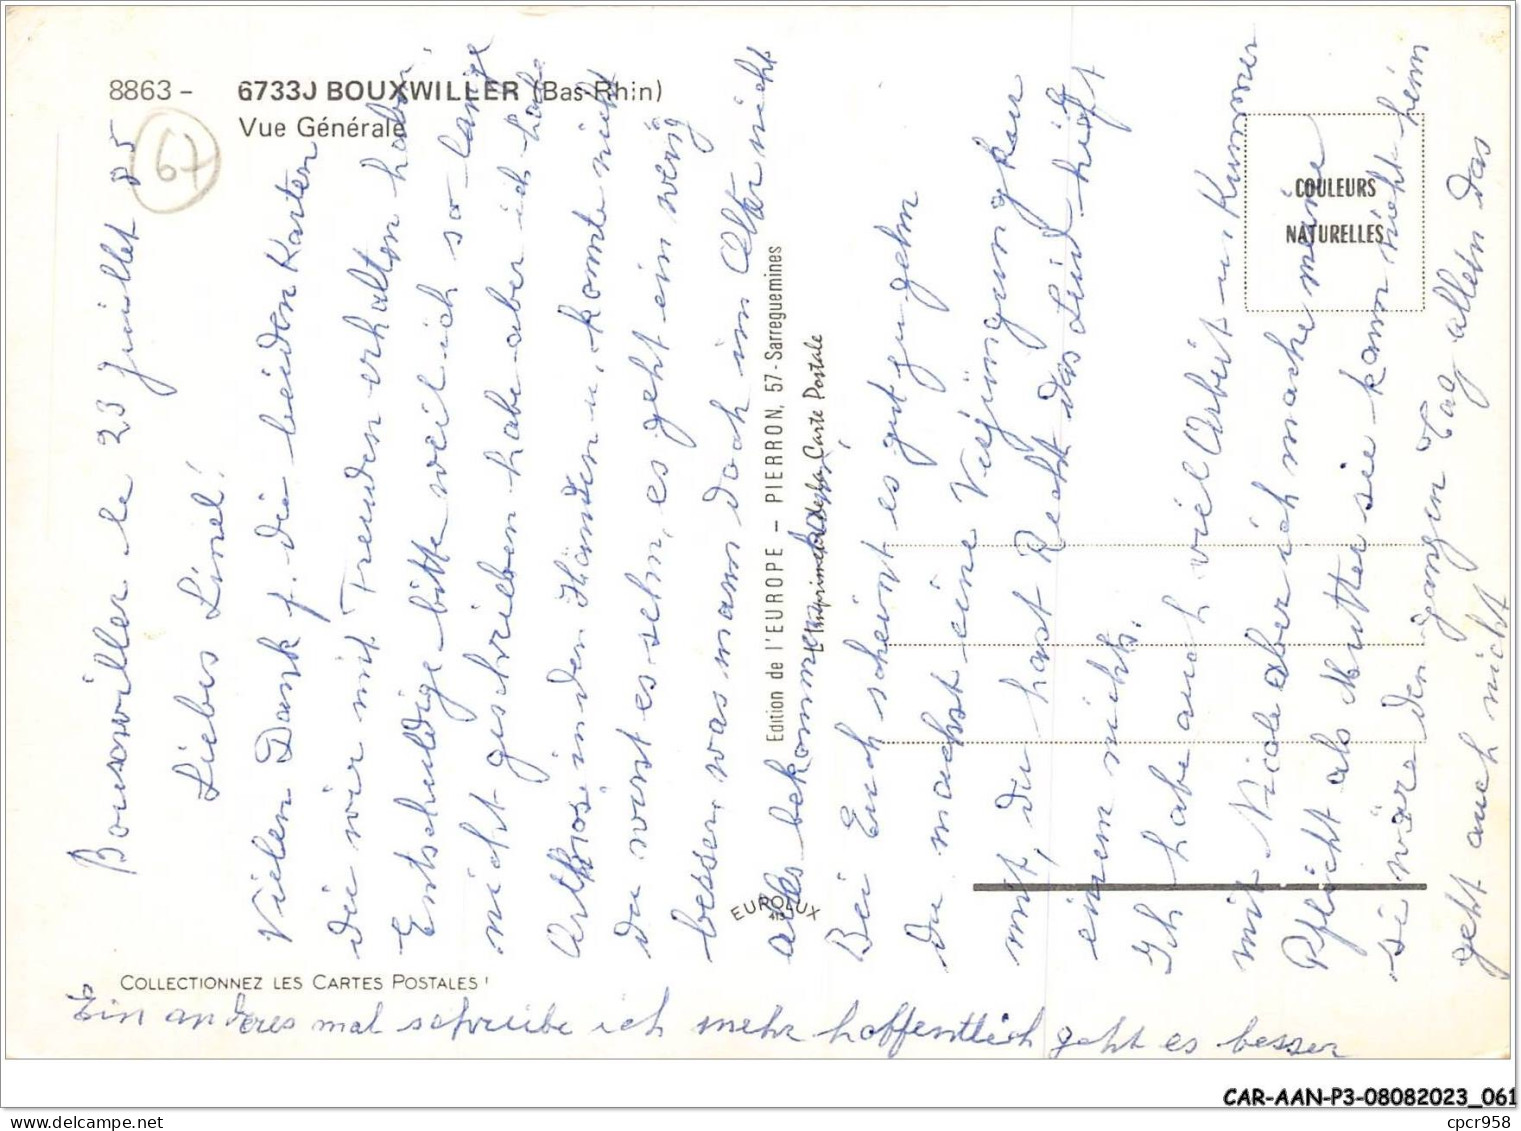 8863 - 6733J BOUXWILLER (Bas-Rhin)
Vue Générale
67
Bouxwiller le 23 Juillet 85
Liebes Linel!
Vielen Dank f. die beiden Karten
die wir mit Freuden erhalten haben,
Entschuldige bitte weil ich so lange
nicht geschrieben habe aber ich habe
Arthrose in den Händen u. konnte nicht
du wirst es sehn, es geht ein wenig
besser, was mann doch im Alter nicht
alles bekommen kann,
Bei Euch scheint es gut zu gehn
du machst eine Verjüngungskur
mit, du hast Recht das Leid hilft
einem nichts.
Ich habe auch viel Arbeit u. Kummer
mit Nicole aber ich mache meine
Pflicht als Mutter sie kann nicht heim
sie wäre den ganzen Tag allein das
geht auch nicht
Ein anderes mal schreibe ich mehr hoffentlich geht es besser
Edition de l'EUROPE - PIERRON, 57-Sarreguemines
L'imprimeur de la Carte Postale
EUROLUX
COULEURS
NATURELLES
COLLECTIONNEZ LES CARTES POSTALES !
CAR-AAN-P3-08082023_061
cpcr958